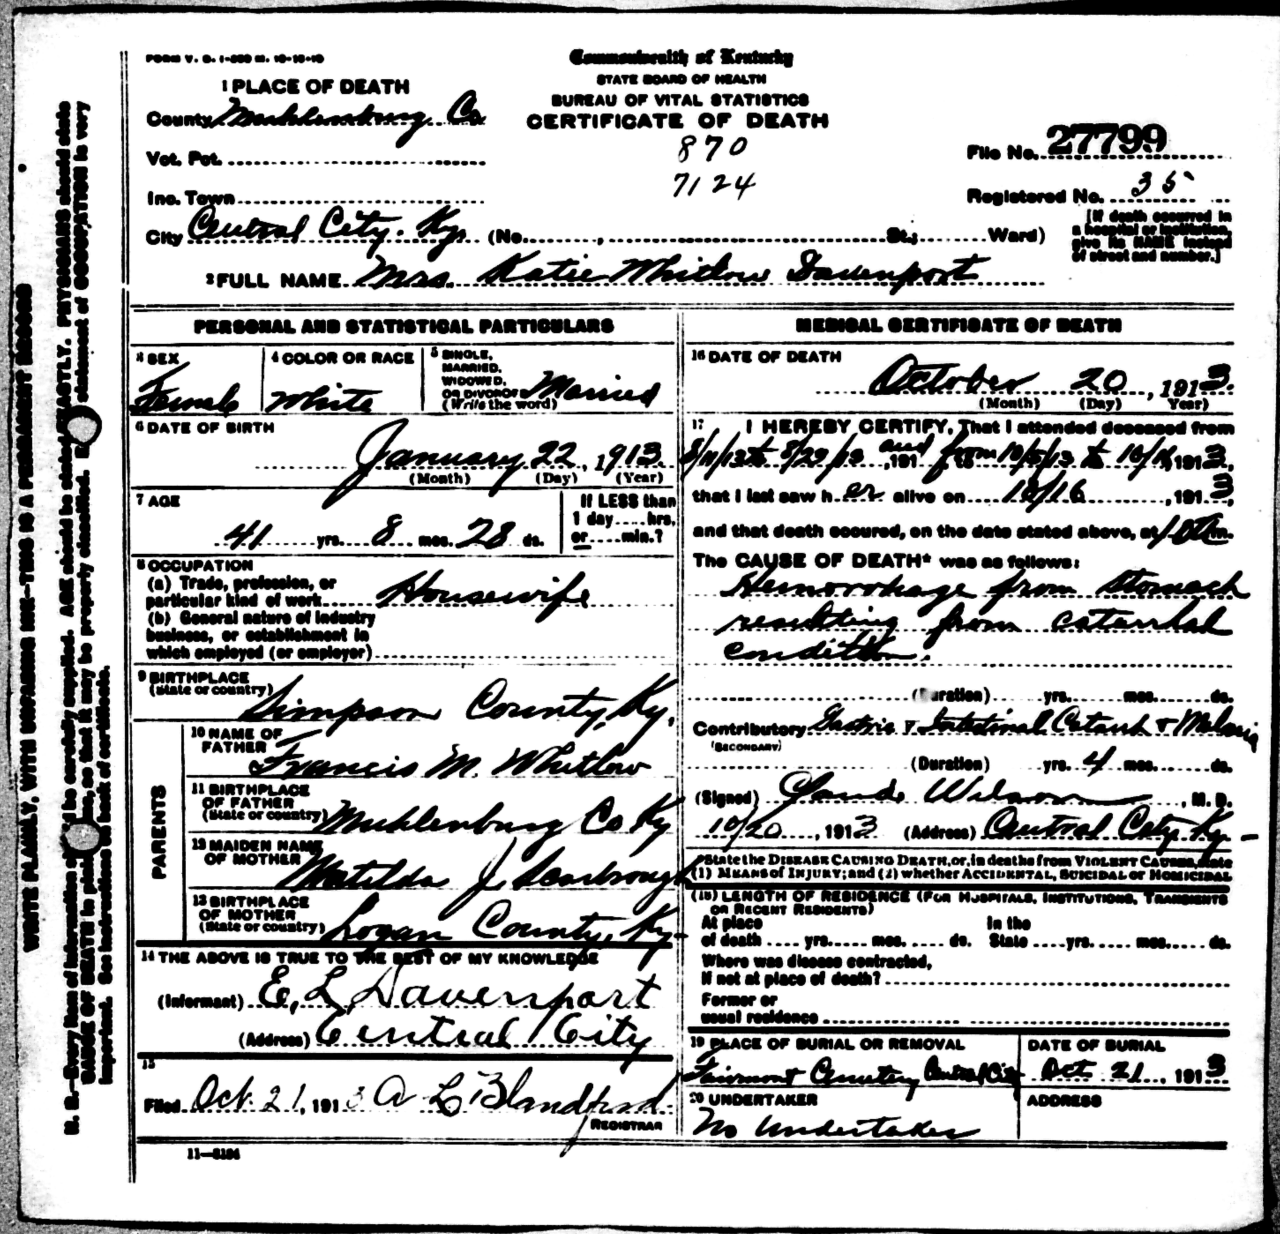 FORM V. S. 1-250 M. 10-10-10
Commonwealth of Kentucky
STATE BOARD OF HEALTH
BUREAU OF VITAL STATISTICS
CERTIFICATE OF DEATH
1 PLACE OF DEATH
County Muhlenburg Co
870
Vot. Pct.
File No. 27799
7124
Inc. Town
Registered No. 35
City Central City. Ky. (No. , St.; Ward)
[If death occurred in a hospital or institution, give its NAME instead of street and number.]
2 FULL NAME Mrs. Katie Whitlow Davenport
PERSONAL AND STATISTICAL PARTICULARS
3 SEX
Female
4 COLOR OR RACE
White
5 SINGLE, MARRIED, WIDOWED, OR DIVORCED (Write the word)
Married
6 DATE OF BIRTH
January 22, 1913
(Month) (Day) (Year)
7 AGE
41 yrs. 8 mos. 28 ds.
If LESS than 1 day.....hrs. or.....min.?
8 OCCUPATION
(a) Trade, profession, or particular kind of work Housewife
(b) General nature of industry business, or establishment in which employed (or employer)
9 BIRTHPLACE
(State or country)
Simpson County, Ky.
PARENTS
10 NAME OF FATHER
Francis M. Whitlow
11 BIRTHPLACE OF FATHER
(State or country) Muhlenburg Co Ky
12 MAIDEN NAME OF MOTHER
Matilda J. Scarbrough
13 BIRTHPLACE OF MOTHER
(State or country) Logan County, Ky-
14 THE ABOVE IS TRUE TO THE BEST OF MY KNOWLEDGE
(Informant) E, L, Davenport
(Address) Central City
15
Filed Oct. 21, 1913 A L Blandford
REGISTRAR
11—5184
MEDICAL CERTIFICATE OF DEATH
16 DATE OF DEATH
October 20, 1913.
(Month) (Day) Year)
17 I HEREBY CERTIFY, That I attended deceased from
8/11/13 to 8/29/13, 191 and from 10/5/13 to 10/16 1913,
that I last saw her alive on 10/16, 1913,
and that death occured, on the date stated above, at m.
The CAUSE OF DEATH* was as follows:
Hemorrohage from stomach
resulting from catarrhal
condition.
(Duration) yrs. mos. ds.
Contributory Gastric & Intestinal Catarrh & Malaria
(SECONDARY)
(Duration) yrs. 4 mos. ds.
(Signed) Claude Wilson, M. D.
10/20, 1913 (Address) Central City Ky-
*State the DISEASE CAUSING DEATH, or, in deaths from VIOLENT CAUSES, state
(1) MEANS of INJURY; and (2) whether ACCIDENTAL, SUICIDAL or HOMICIDAL
(18) LENGTH OF RESIDENCE (FOR HOSPITALS, INSTITUTIONS, TRANSIENTS OR RECENT RESIDENTS)
At place of death .... yrs. .... mos. .... ds.
In the State .... yrs. .... mos. .... ds.
Where was disease contracted,
if not at place of death?
Former or
usual residence
19 PLACE OF BURIAL OR REMOVAL
Fairmont Cemetery Central City
DATE OF BURIAL
Oct 21, 1913
20 UNDERTAKER
No Undertaker
ADDRESS
WRITE PLAINLY, WITH UNFADING INK—THIS IS A PERMANENT RECORD
N. B.—Every item of information should be carefully supplied. AGE should be stated EXACTLY. PHYSICIANS should state
CAUSE OF DEATH in plain terms, so that it may be properly classified. Exact statement of OCCUPATION is very
important. See instructions on back of certificate.